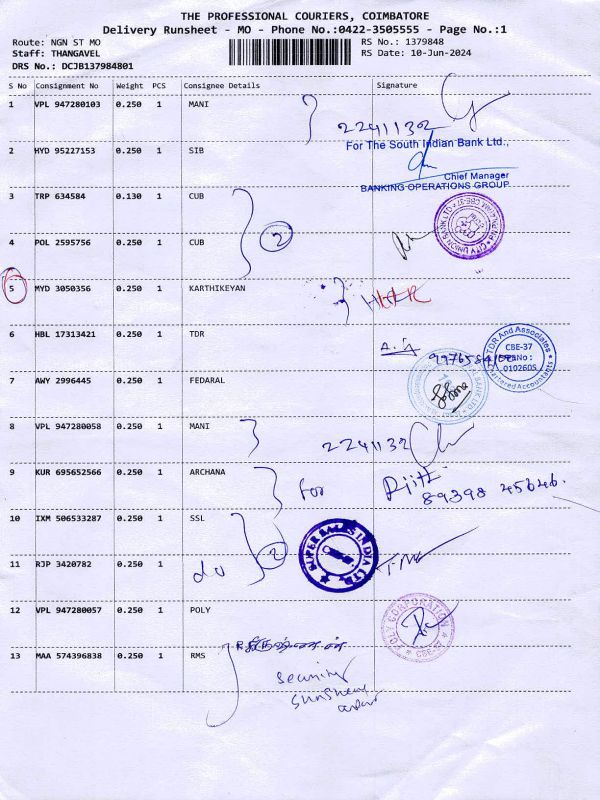 THE PROFESSIONAL COURIERS, COIMBATORE
Delivery Runsheet - MO - Phone No.:0422-3505555 - Page No.:1
Route: NGN ST MO
RS No.: 1379848
Staff: THANGAVEL
RS Date: 10-Jun-2024
DRS No.: DCJB137984801
S No Consignment No Weight PCS Consignee Details Signature
1 VPL 947280103 0.250 1 MANI
22411302
For The South Indian Bank Ltd.,
2 HYD 95227153 0.250 1 SIB
Chief Manager
BANKING OPERATIONS GROUP
3 TRP 634584 0.130 1 CUB
2
CITY UNION BANK LTD
4 POL 2595756 0.250 1 CUB
5 MYD 3050356 0.250 1 KARTHIKEYAN
6 HBL 17313421 0.250 1 TDR
TDR And Associates
CBE-37
010260S
Chartered Accountants
7 AWY 2996445 0.250 1 FEDARAL
8 VPL 947280058 0.250 1 MANI
2241132
9 KUR 695652566 0.250 1 ARCHANA
for
89398 45646
10 IXM 506533287 0.250 1 SSL
2
SUPER SALES INDIA LTD
11 RJP 3420782 0.250 1
do
12 VPL 947280057 0.250 1 POLY
POLY CORPORATION
CBE-37
13 MAA 574396838 0.250 1 RMS
Security